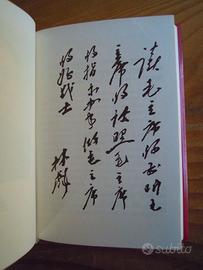 读毛主席的书听毛
主席的话照毛主席
的指示办事做毛主席
的好战士
林彪
subito